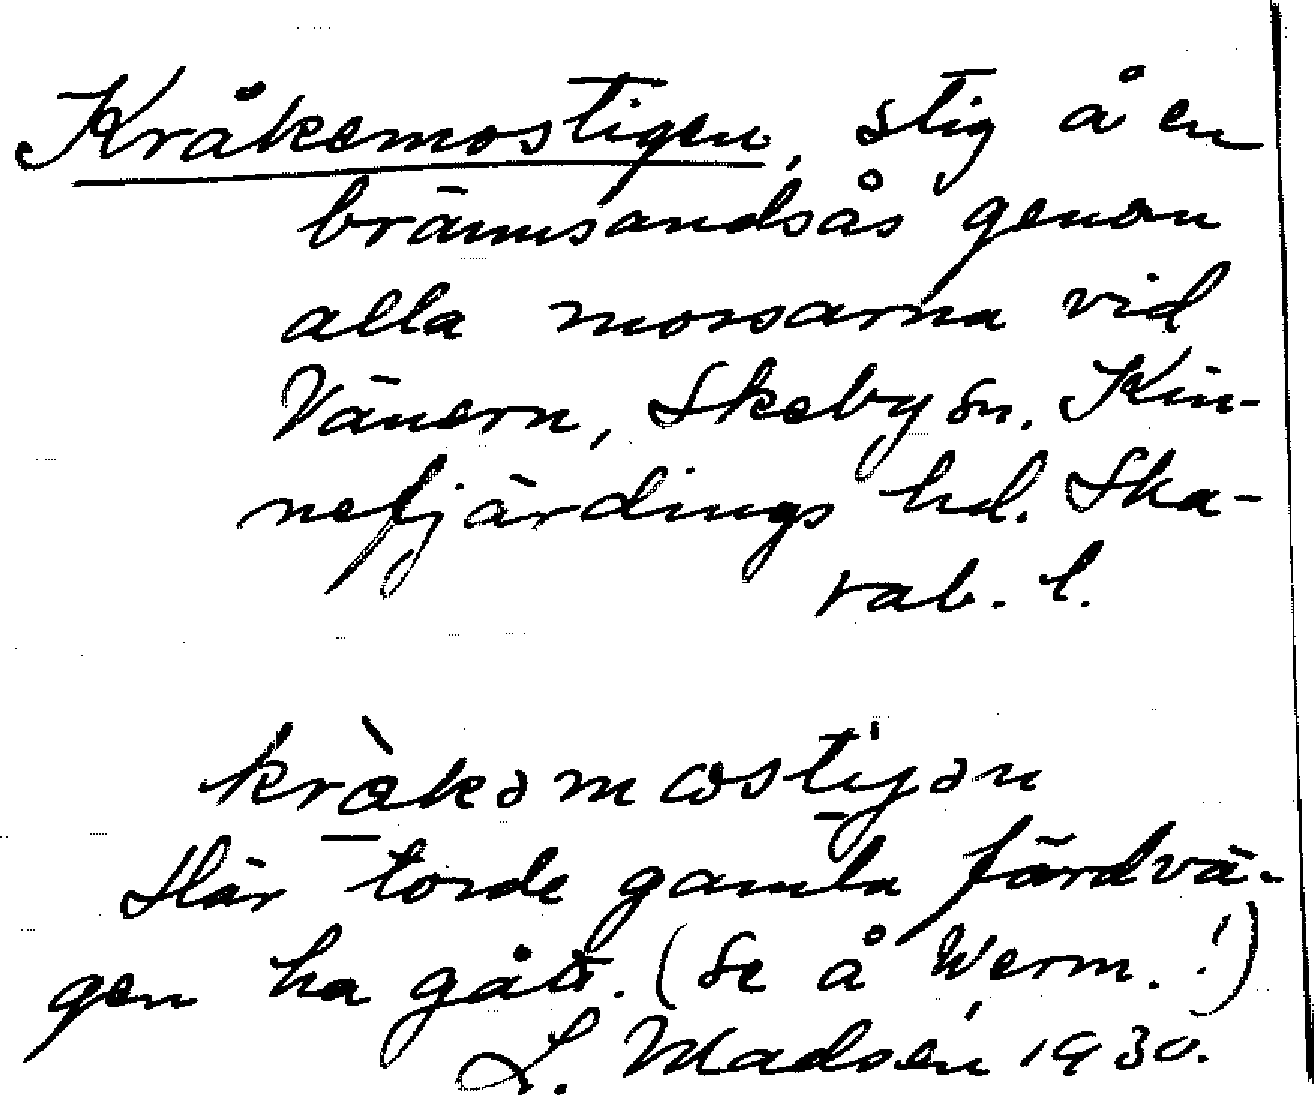 Kråkemostigen, stig å en
brännsandsås genom
alla mossarna vid
Vänern, Skeby sn. Kin-
nefjärdings hd. Ska-
rab. l.
kràkəmωstijən
Här torde gamla färdvä-
gen ha gått. (Se å Werm.!)
L. Madsén 1930.